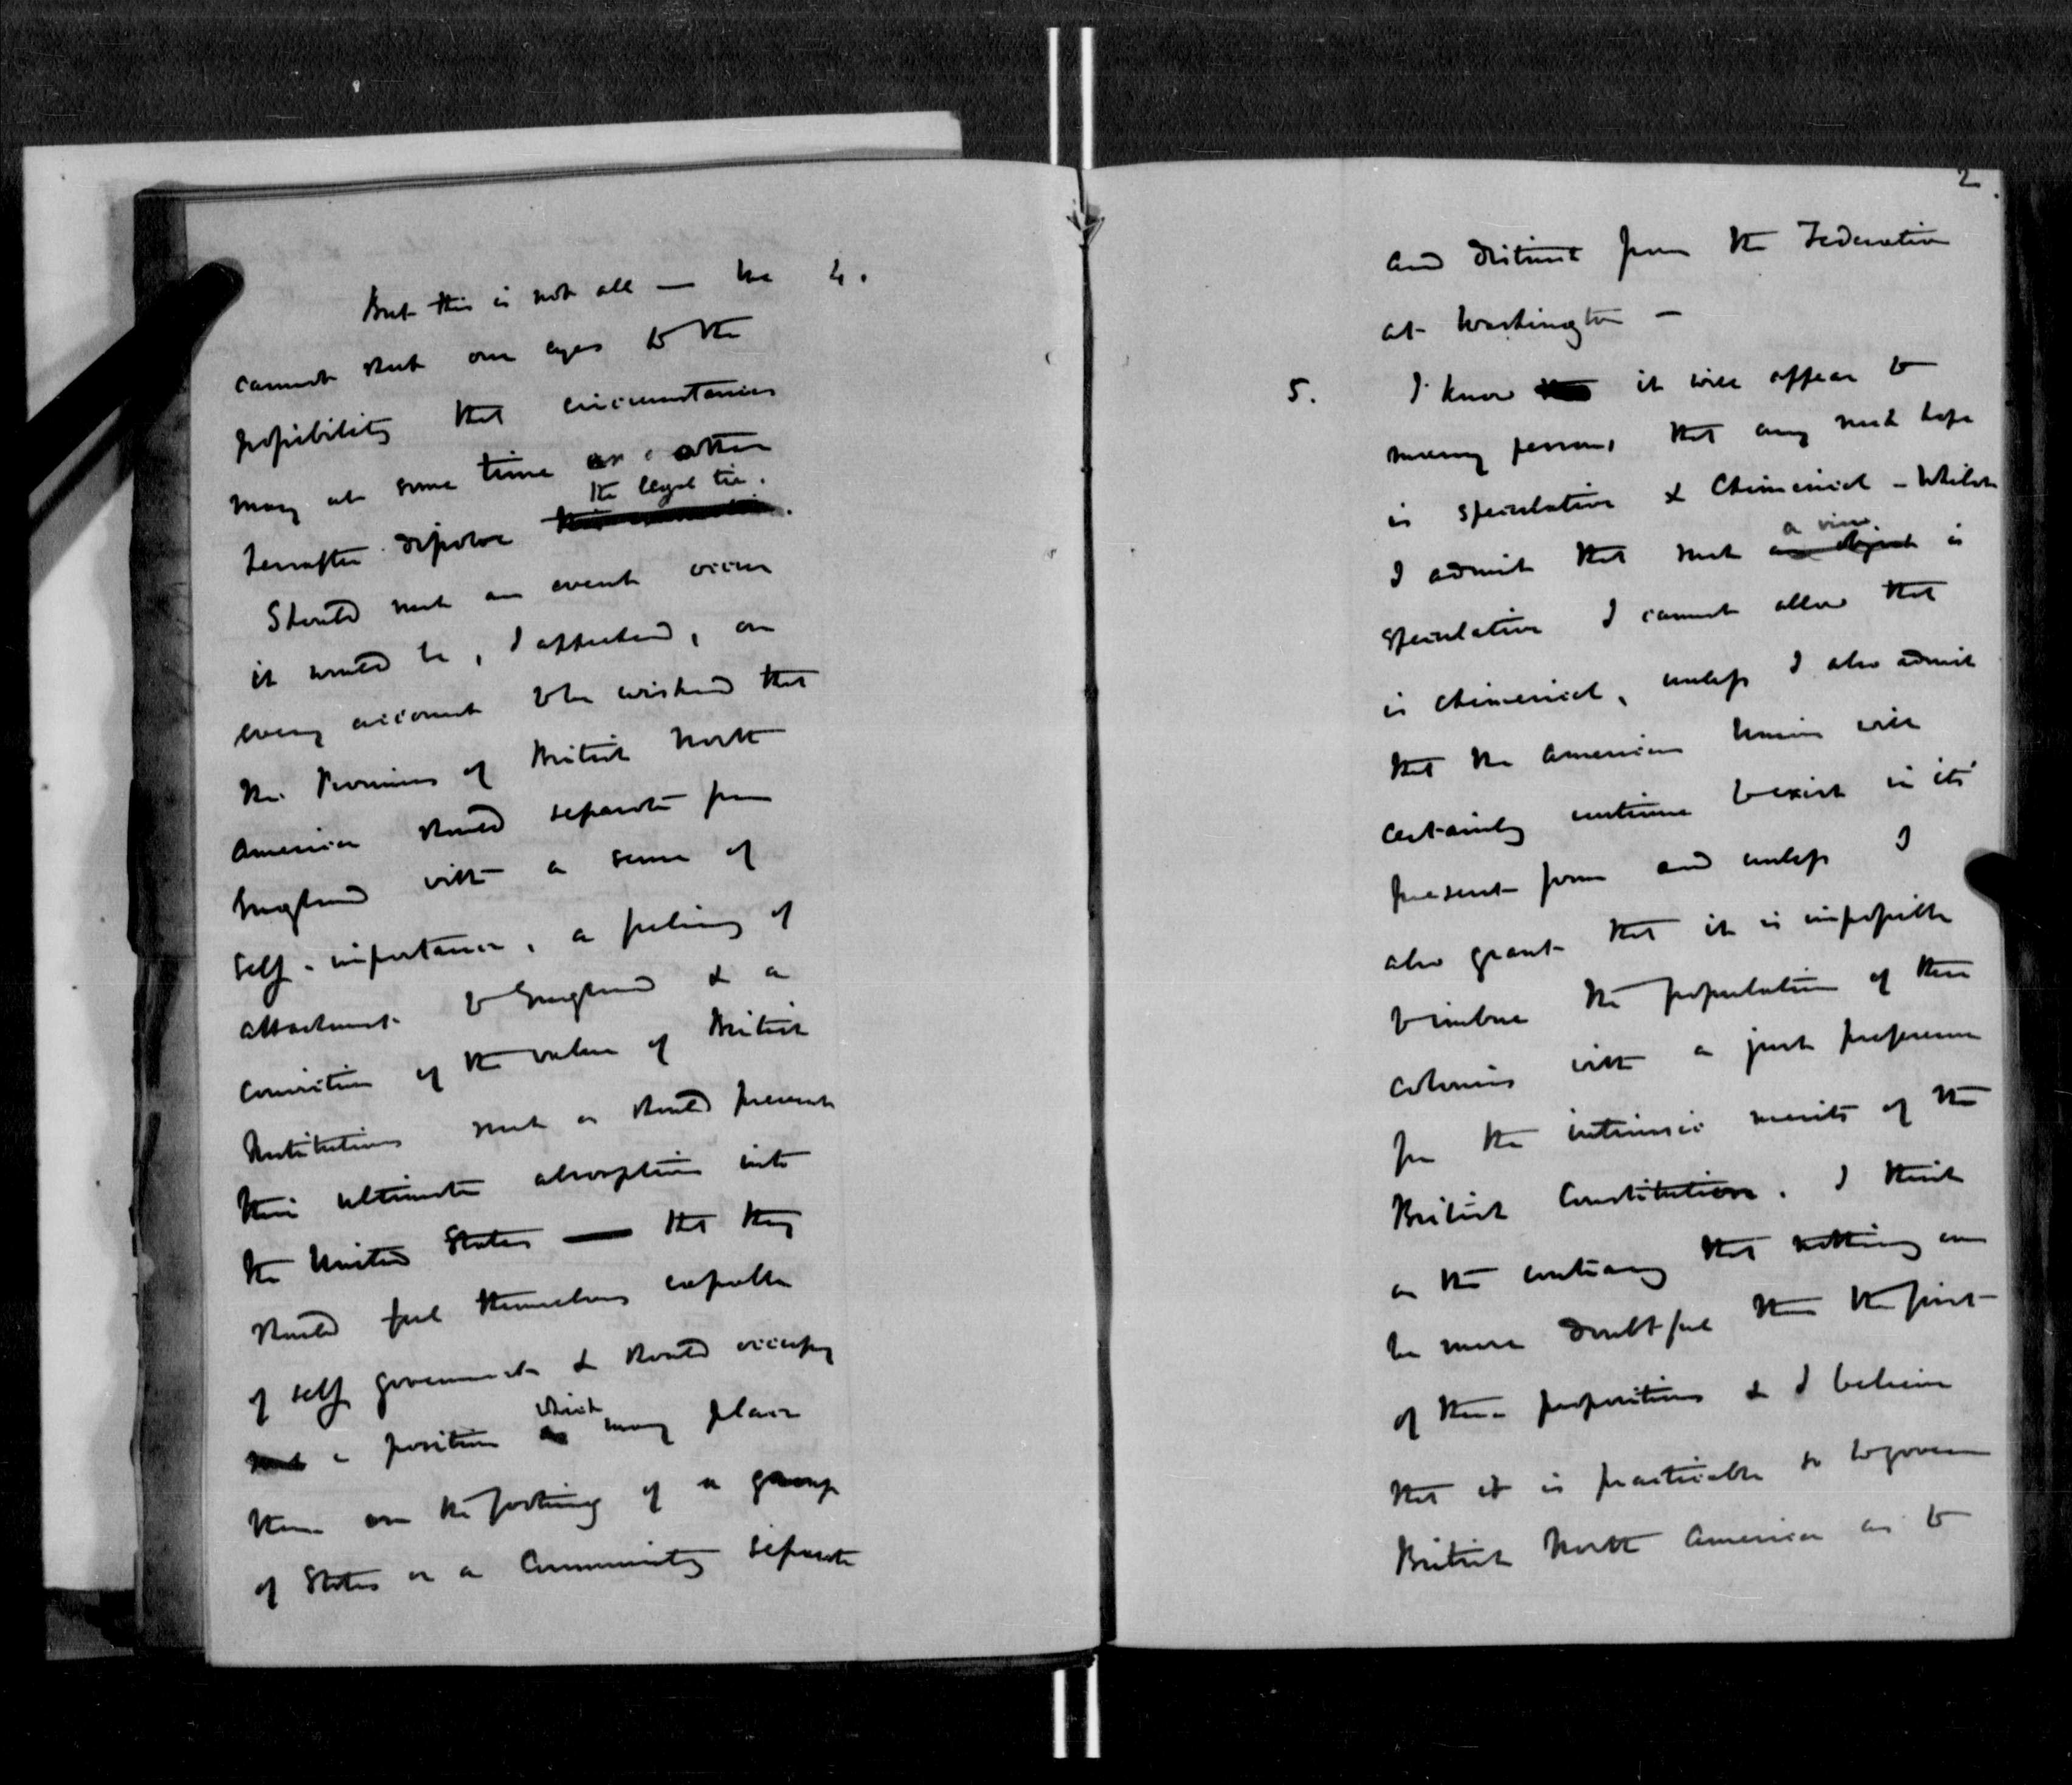 But this is not all — we 4.
cannot shut our eyes to the
possibility that circumstances
may at some time or other
the legal tie.
hereafter dissolve this connection.
Should such an event occur
it would be, I apprehend, on
every account to be wished that
the Provinces of British North
America should separate from
England with a sense of
self-importance, a feeling of
attachment to England & a
conviction of the value of British
Institutions such as should prevent
their ultimate absorption into
the United States — that they
should feel themselves capable
of self government & should occupy
which
such a position as may place
them on the footing of a group
of States or a Community separate
2.
and distinct from the Federation
at Washington —
5. I know that it will appear to
many persons that any such hope
is speculative & chimerical – Whilst
a view.
I admit that such an object is
speculative I cannot allow that
is chimerical, unless I also admit
that the American Union will
certainly continue to exist in its'
present form and unless I
also grant that it is impossible
to imbue the population of these
colonies with a just preference
for the intrinsic merits of the
British Constitution. I think
on the contrary that nothing can
be more doubtful than the first
of these propositions & I believe
that it is practicable so to govern
British North America as to